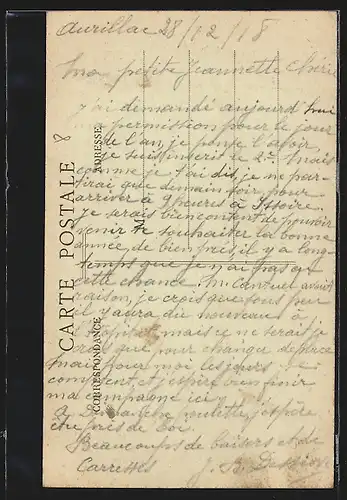 Aurillac 28/12/18
Ma petite Jeannette Chérie
j'ai demandé aujourd'hui
permission pour le jour
de l'an, je pense l'avoir,
je suis inscrit le 2e. Mais
comme je t'ai dit, je ne par-
tirai que demain soir pour
arriver à 9 heures à Issoire.
je serais bien content de pouvoir
venir te souhaiter la bonne
année, de bien près, il y a long-
temps que je n'ai pas eu
cette chance. avait
raison, je crois que sous peu
il y aura du nouveau à
l'hôpital mais ce ne serait je
crois que pour changer de place
Mais pour moi les jours se
comptent, et j'espère bien finir
ma campagne ici
A Dimanche poulette, j'espère
être près de toi.
Beaucoups de baisers et de
Carresses
J. B.
CARTE POSTALE
CORRESPONDANCE
ADRESSE